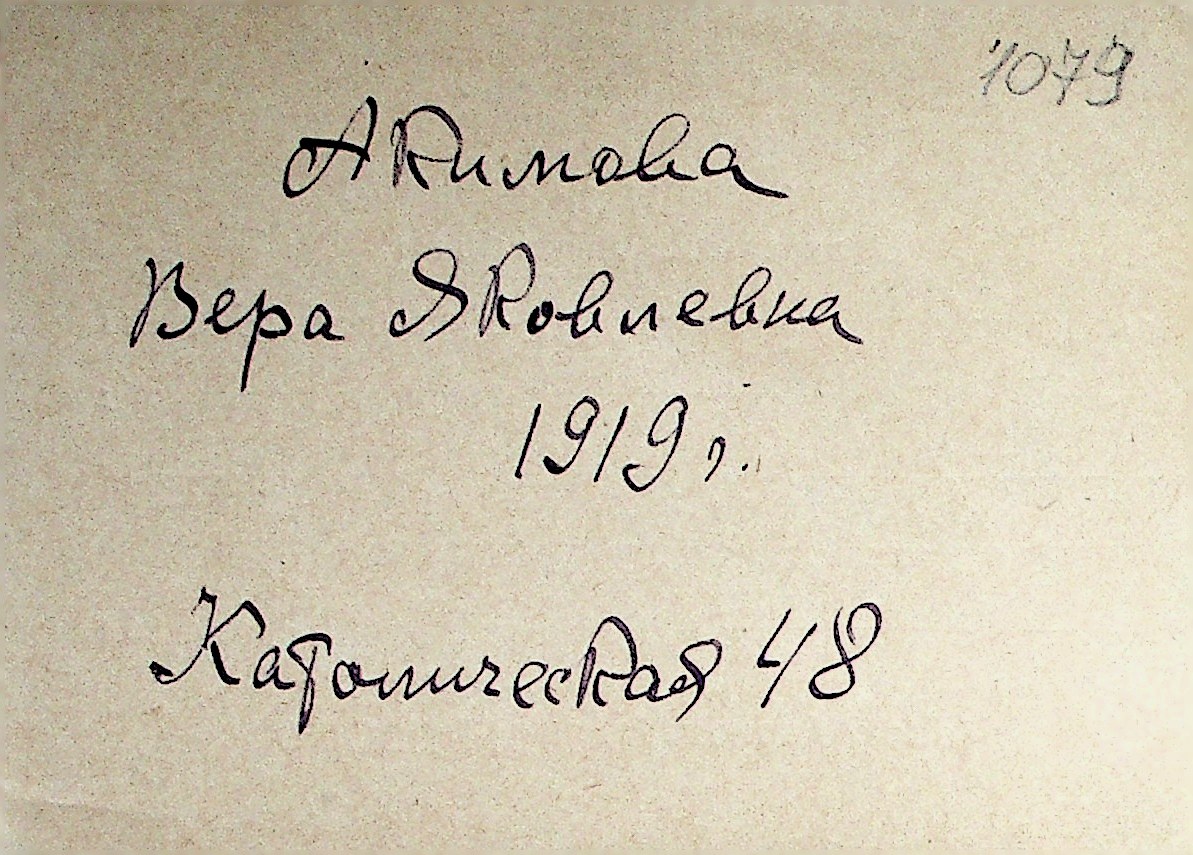 1079
Акимова
Вера Яковлевна
1919 г.
Католическая 48